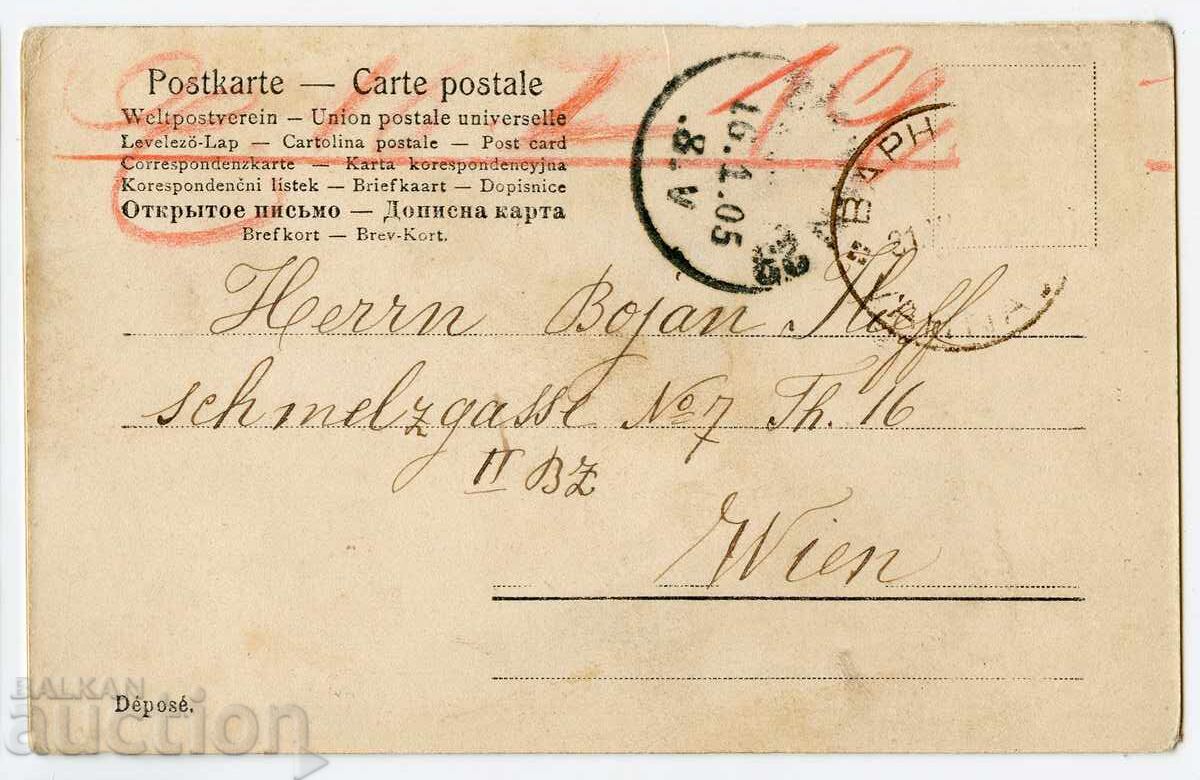 Postkarte — Carte postale
Weltpostverein — Union postale universelle
Levelező-Lap — Cartolina postale — Post card
Correspondenzkarte — Karta korespondencyjna
Korespondenční lístek — Briefkaart — Dopisnice
Открытое письмо — Дописна карта
Brefkort — Brev-Kort.
16.1.05
.8-V
ВАРН
Herrn Bojan
Schmelzgasse No 7 Th. 16
II BZ
Wien
Déposé.
BALKAN
auction